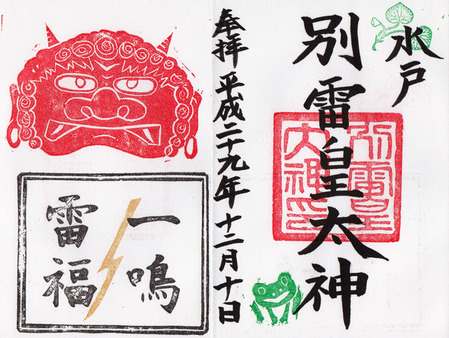 水戸
別雷皇太神
別雷皇
大神印
奉拝 平成二十九年十二月十日
一鳴
雷福